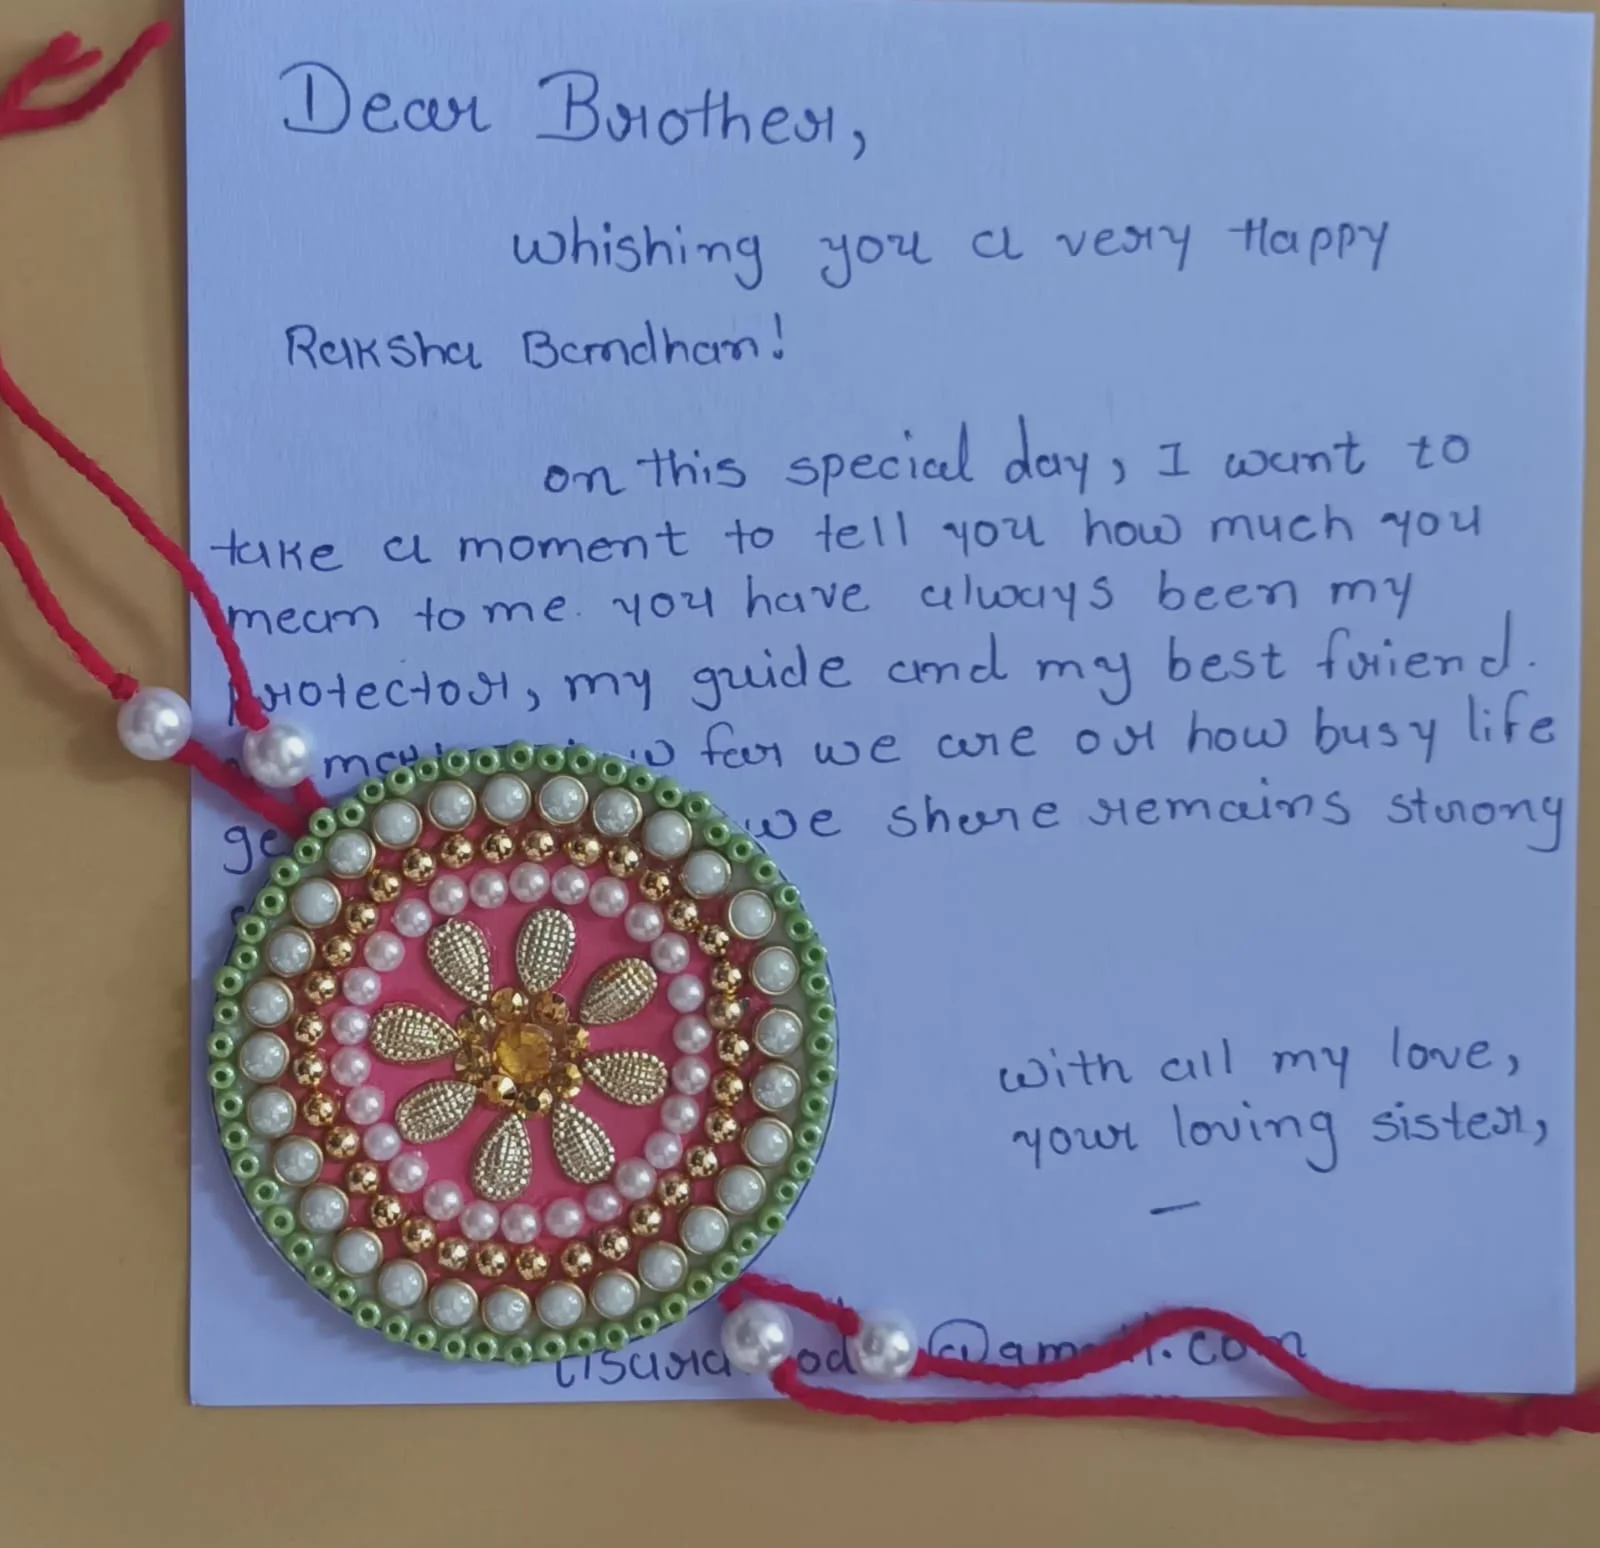 Dear Brother,
Whishing you a very Happy
Raksha Bandhan!
on this special day, I want to
take a moment to tell you how much you
mean to me. you have always been my
protector, my guide and my best friend.
far we are or how busy life
we share remains strong
with all my love,
your loving sister,
—